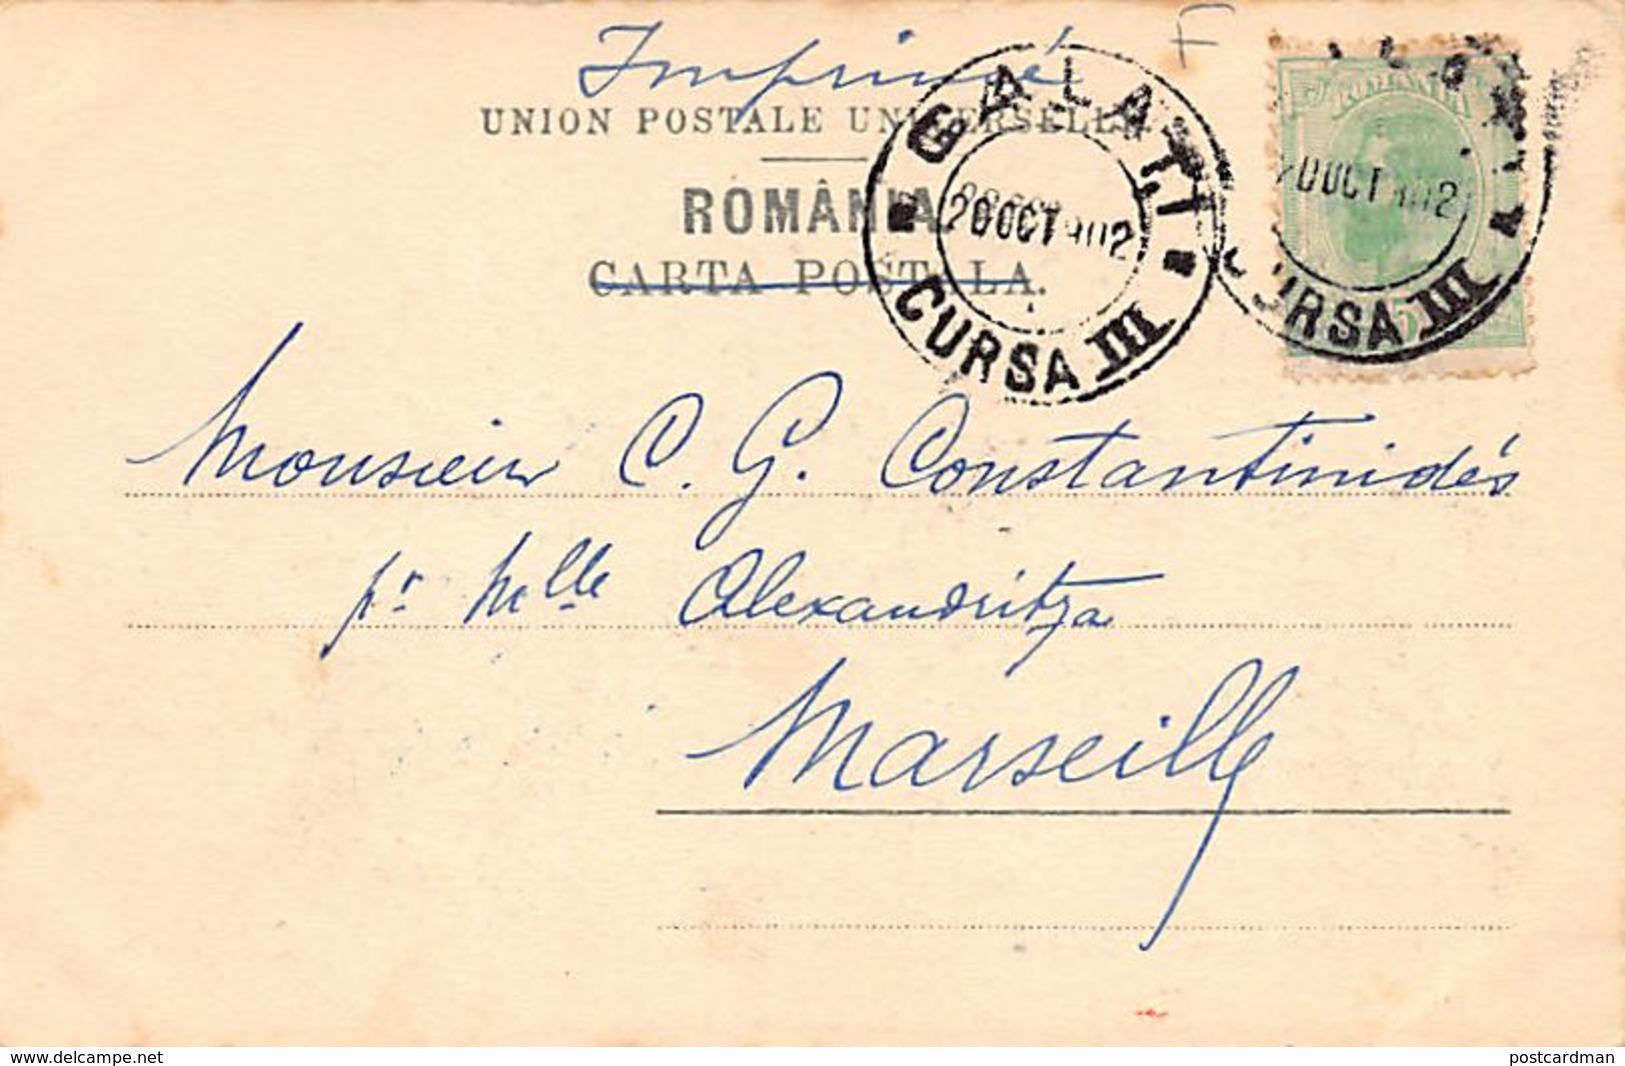 Imprimé
F
UNION POSTALE UNIVERSELLE.
ROMÂNIA
CARTA POSTALA.
GALATI
20 OCT 902
CURSA III
ROMANIA
20 OCT 902
CURSA III
5
Monsieur C. G. Constantinidés
pr Mlle Alexandritza
Marseille
www.delcampe.net
postcardman